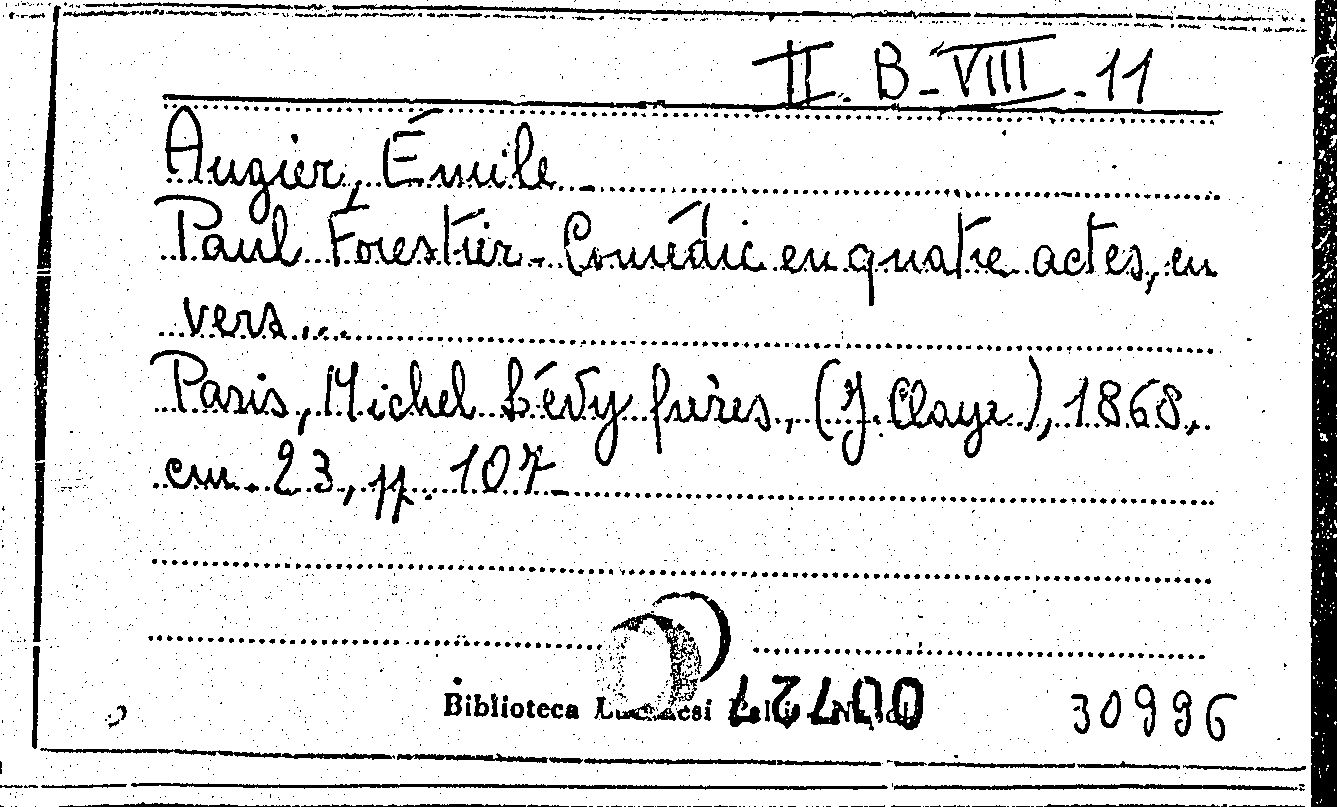 II. B-VIII-11
Augier, Émile
Paul Forestier - Comédie en quatre actes, en
vers...
Paris, Michel Lévy frères, (J. Claye), 1868,
cm. 23, pp. 107
Biblioteca
30996